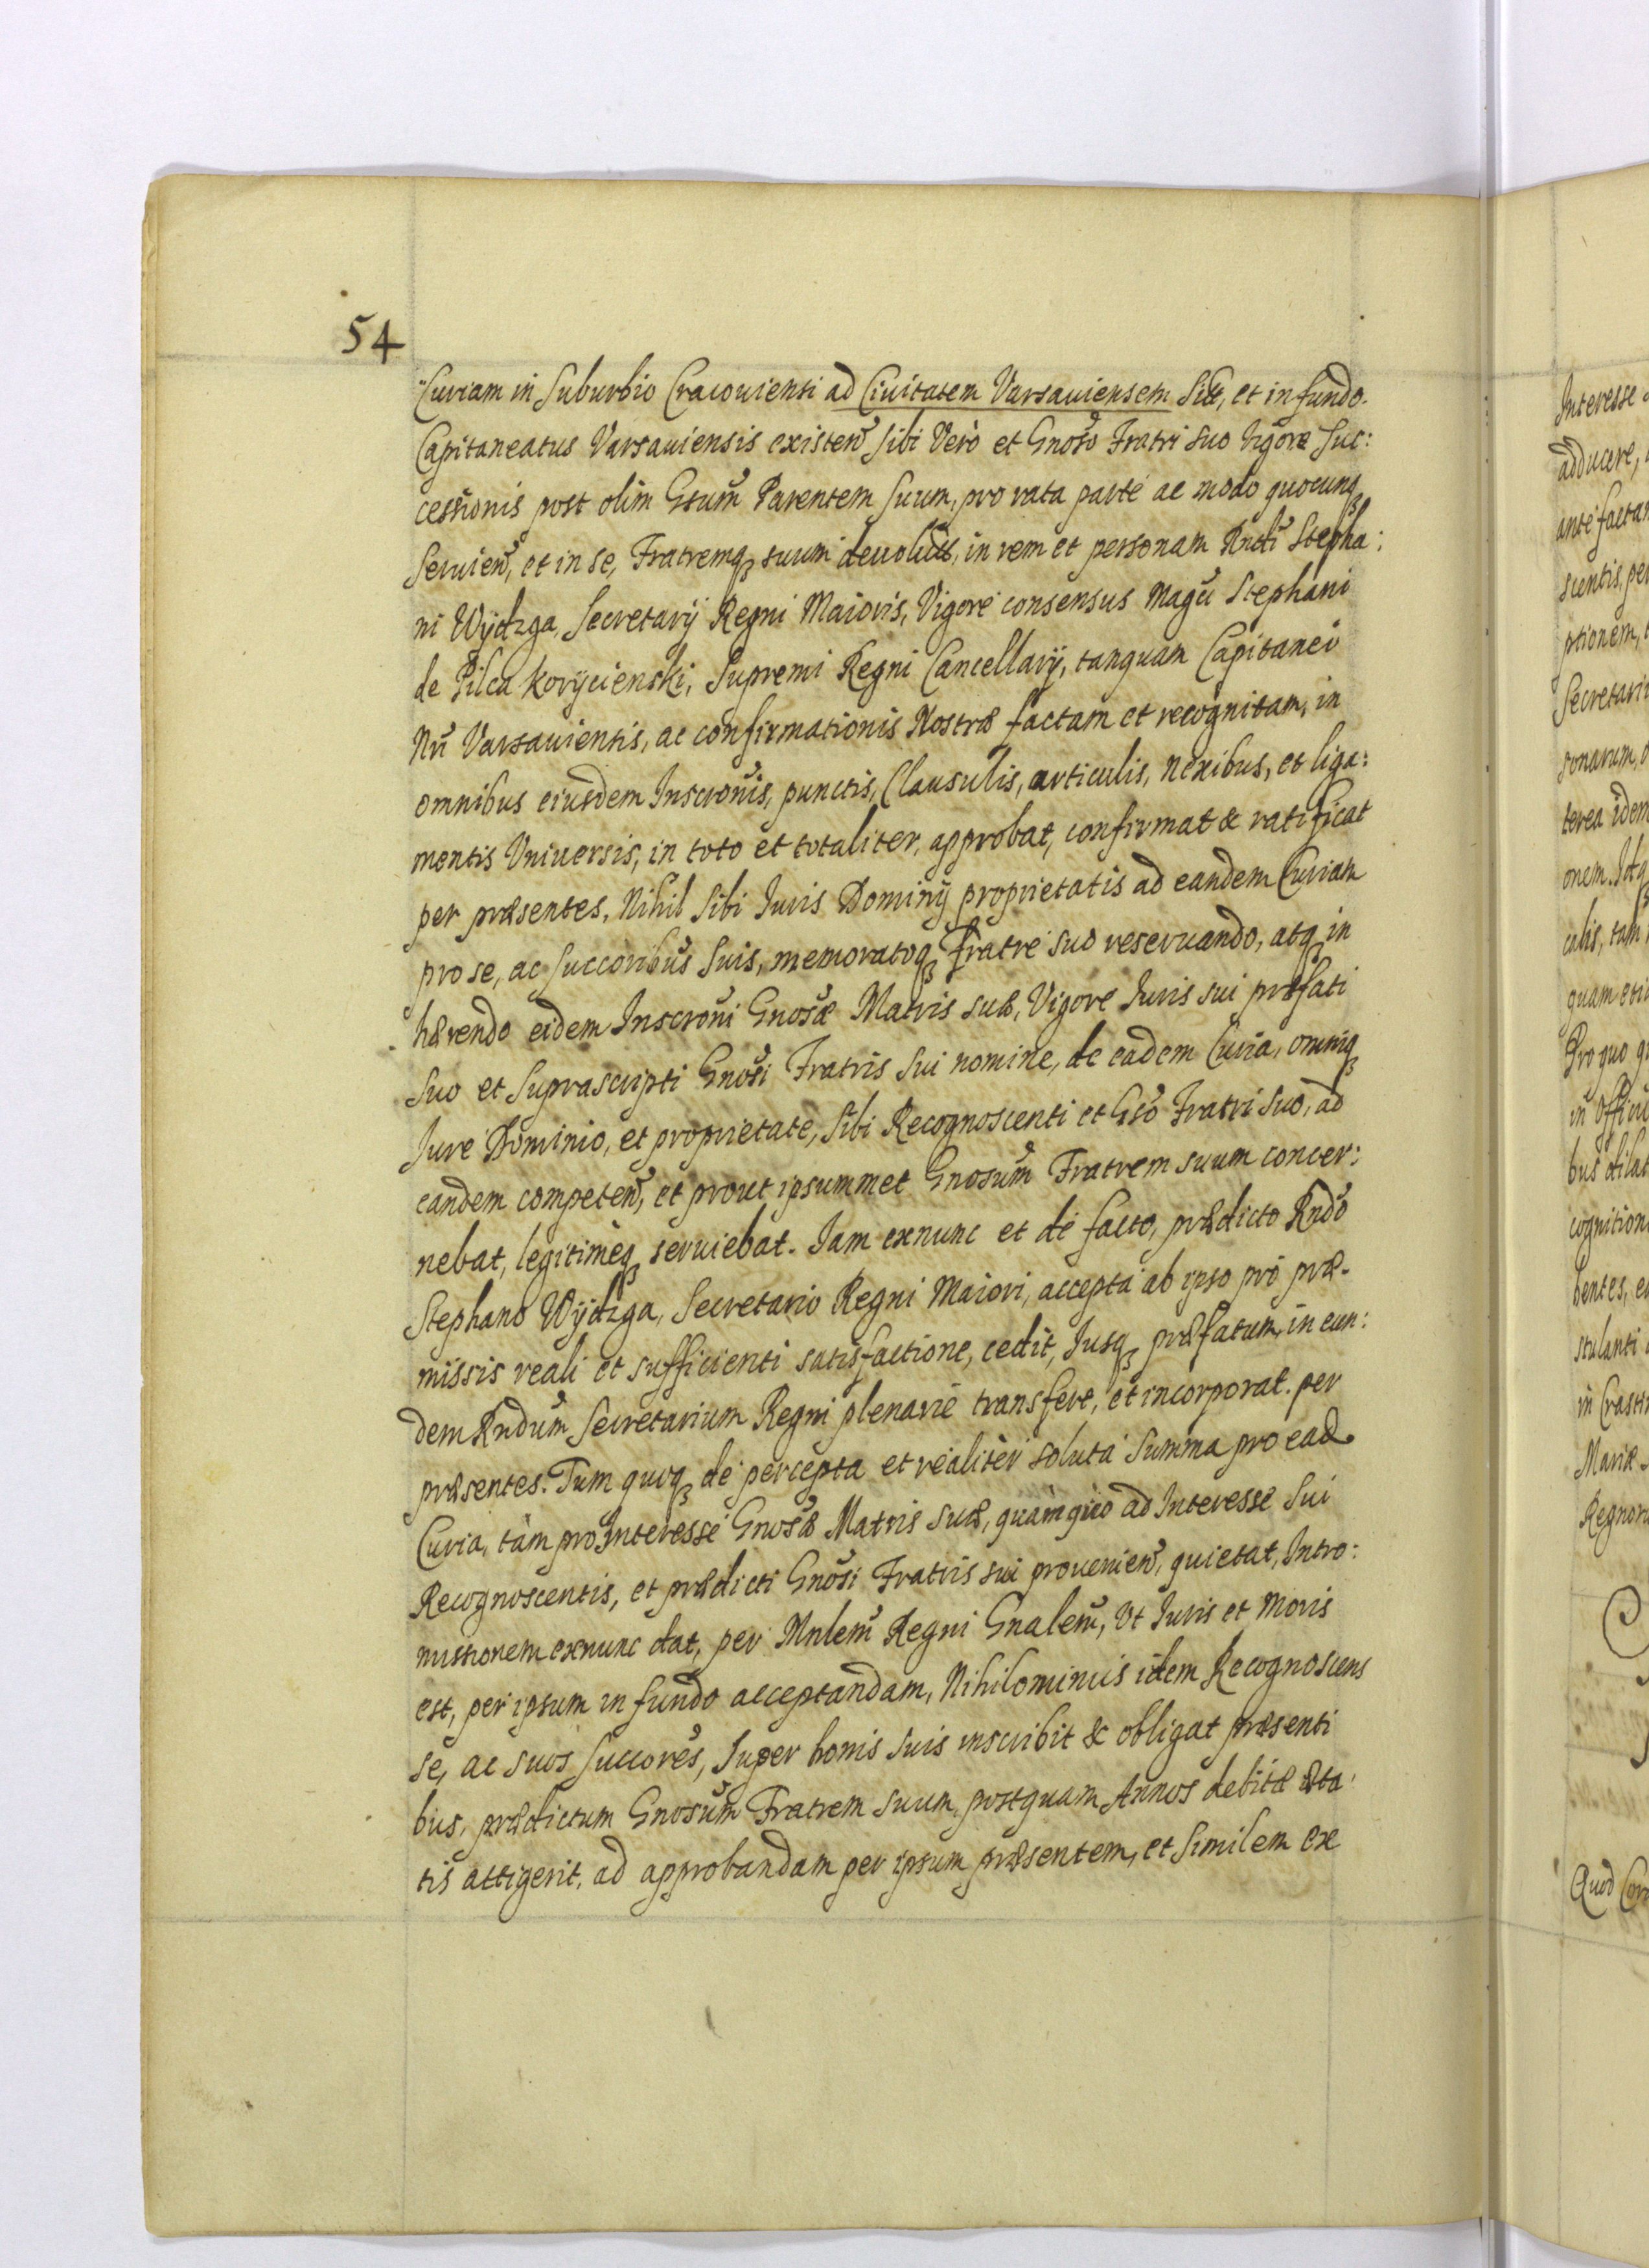 54
Curiam in Suburbio Cracouiensi ad Ciuitatem Varsauiensem Sit̃, et in fundo
Capitaneatus Varsauiensis existeñ Sibi Verò et Gnoso Fratri suo Vigore Suc:
cessionis post olim Gsum̃ Parentem Suum, pro rata parte ac modo quocunq3
Seruieñ, et in se, Fratremq3 suum deuolut̃, in rem et personam Rndi Stepha:
ni Wÿdzga, Secretarÿ Regni Maioris, Vigore consensus Magci Stephani
de Pilca Korÿcienski, Supremi Regni Cancellarÿ, tanquam Capitanei
Nri Varsauiensis, ac confirmationis Nostræ factam et recognitam, in
omnibus eiusdem Inscronis, punctis, Clausulis, articulis, nexibus, et liga:
mentis Vniuersis, in toto et totaliter, approbat, confirmat & ratificat
per præsentes, Nihil Sibi Iuris Dominÿ proprietatis ad eandem Curiam
pro se, ac Succoribus Suis, memoratoq3 fratre suo reseruando, atq3 in
hærendo eidem Inscroni Gnosæ Matris suæ, Vigore Iuris sui præfati
Suo et Suprascripti Gnosi Fratris Sui nomine, de eadem Curia, omniq3
Iure Dominio, et proprietate, Sibi Recognoscenti et Gso Fratri Suo, ad
eandem competeñ, et prout ipsummet Gnosum Fratrem suum concer:
nebat, legitimèq3 seruiebat. Iam exnunc et de facto, prædicto Rndo
Stephano Wÿdzga, Secretario Regni Maiori, accepta ab ipso pro præ-
missis reali et sufficienti satisfactione, cedit, Iusq3 præfatum, in eun:
dem Rndum Secretarium Regni plenarie transfert, et incorporat per
præsentes. Tum quoq3 de percepta et realiter soluta Summa pro ead
Curia, tàm pro Interesse Gnosæ Matris Suæ, quàm quo ad Interesse Sui
Recognoscentis, et prædicti Gnosi Fratris sui prouenieñ, quietat, Intro:
missionem exnunc dat, per Mnlem Regni Gnalem, Vt Iuris et Moris
est, per ipsum in fundo acceptandam, Nihilominus idem Recognoscens
se, ac suos Succores, Super bonis Suis inscribit & obligat præsenti
bus, prædictum Gnosum Fratrem suum, postquam Annos debitæ æta:
tis attigerit, ad approbandam per ipsum præsentem, et Similem ex
Interesse
adducere,
ante facta
scentis, pe
ptionem,
Secretari
sonarum,
terea idem
onem. Itq
calis, tam
quam eti
Pro quo q
in Offici
bus dilat
cognition
bentes, e
stulanti
in Crasti
Mariæ
Regnor
Quod Cor